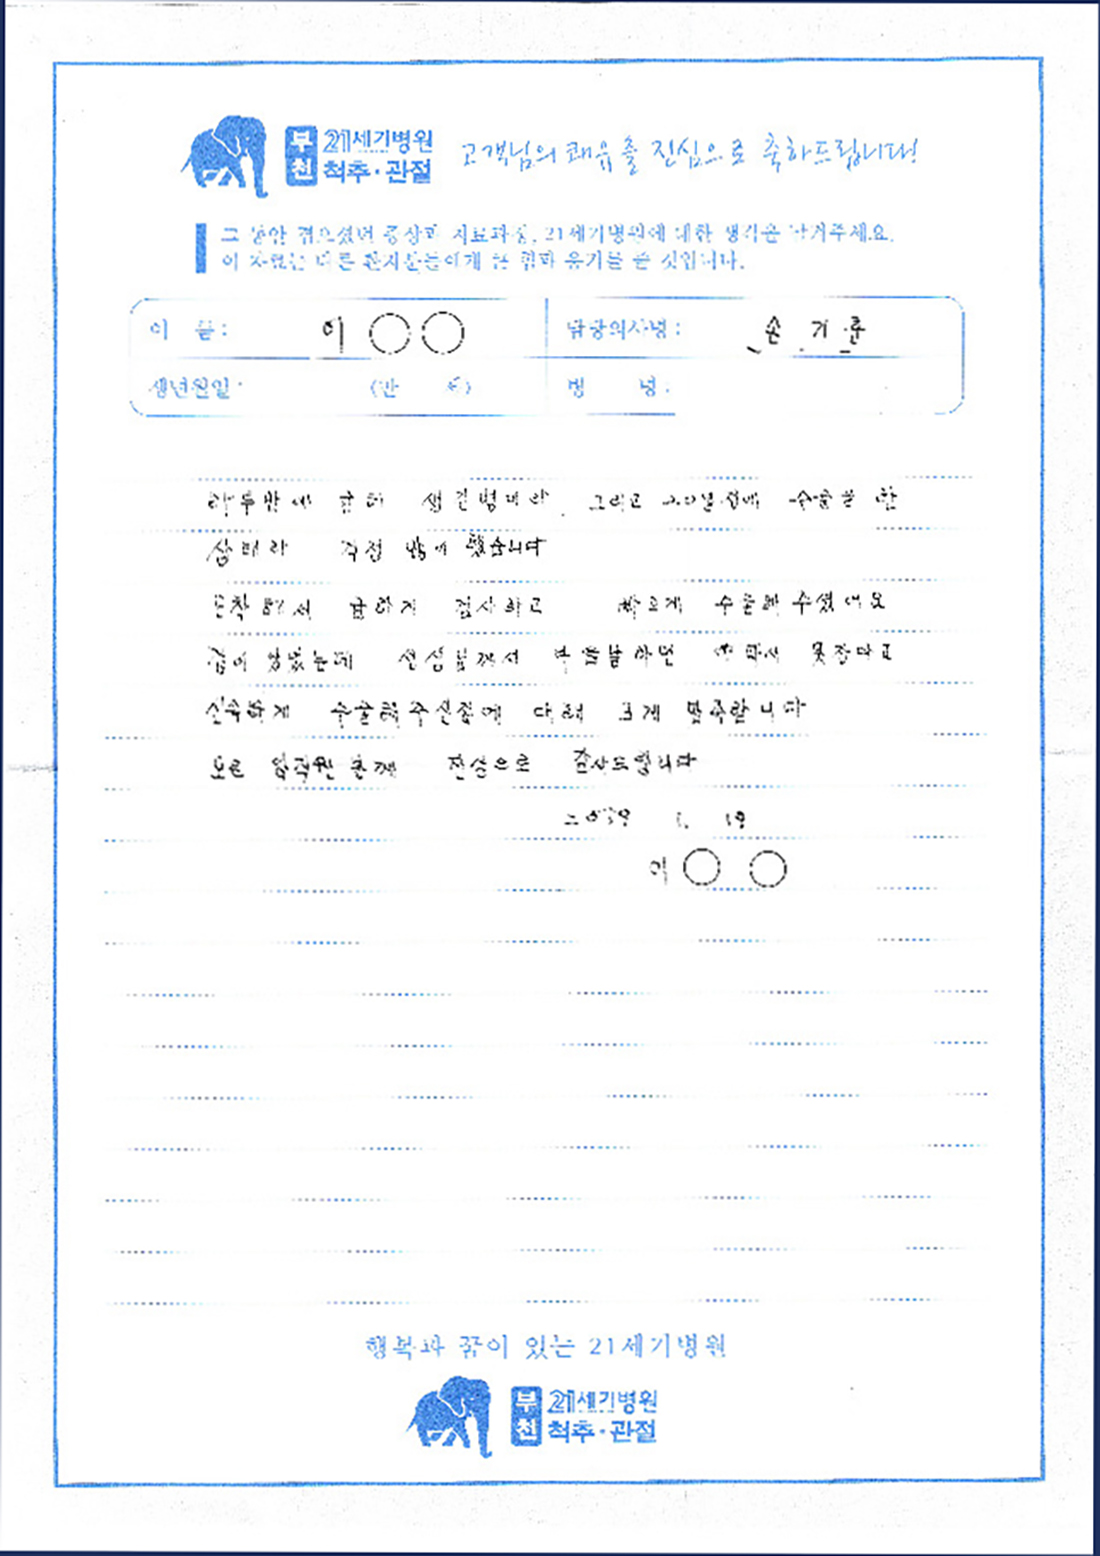 부천 21세기병원
척추·관절
고객님의 쾌유를 진심으로 축하드립니다!
그 동안 겪으셨던 증상과 치료과정, 21세기병원에 대한 생각을 남겨주세요.
이 자료는 다른 환자분들에게 큰 힘과 용기를 줄 것입니다.
이 름 : 이○○ 담당의사명 : 손기준
생년월일 : (만 세) 병 명 :
하루밤에 급히 생긴병이라. 그리고 20일전에 수술을 한
상태라 걱정 많이 했습니다
도착해서 급하게 검사하고 빠르게 수술해 주셨어요
겁이 났었는데 선생님께서
신속하게 수술해주신점에 대해 크게 만족합니다
모든 임직원분께 진심으로 감사드립니다
1. 19
이○ ○
행복과 꿈이 있는 21세기병원
부천 21세기병원
척추·관절